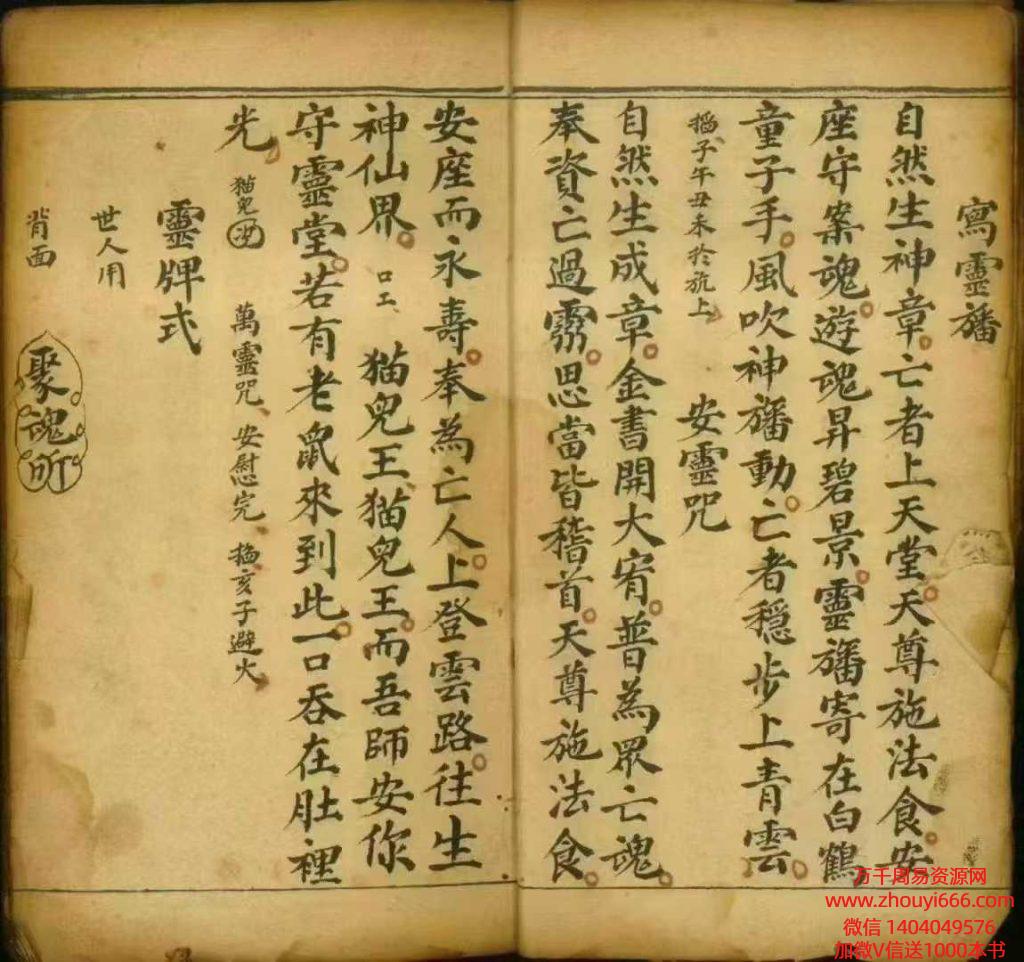 寫靈旛
自然生神章亡者上天堂天尊施法食安
座守案魂遊魂昇碧景靈旛寄在白鶴
童子手風吹神旛動亡者穩步上青雲
掐子午丑未於旂上
安靈咒
自然生成章金書開大宥普為眾亡魂
奉資亡過靈思當皆稽首天尊施法食
安座而永壽奉為亡人上登雲路往生
神仙界 口工 猫兒王猫兒王而吾師安你
守靈堂若有老鼠來到此一口吞在肚裡
光 猫兒 萬靈咒安慰完掐亥子避火
靈牌式
世人用
背面
聚魂所
万千周易资源网
www.zhouyi666.com
微信 1404049576
加微V信送1000本书